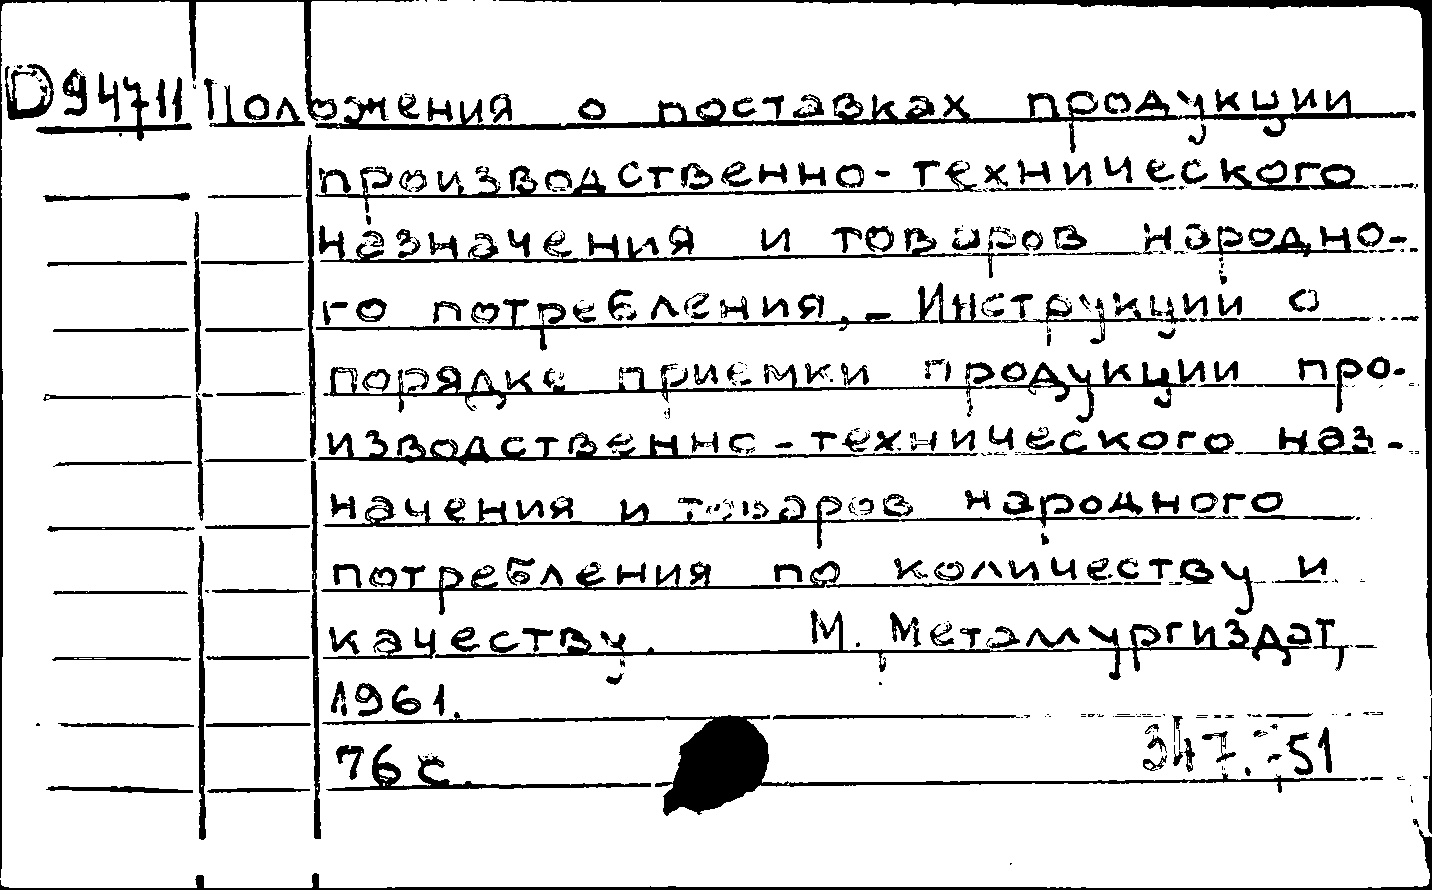 D94711 Положения о поставках продукции
производственно-технического
назначения и товаров народно-
го потребления,- Инструкции о
порядке приемки продукции про-
изводственно-технического наз-
начения и товаров народного
потребления по количеству и
качеству. М., Металлургиздат,
1961.
76 с.